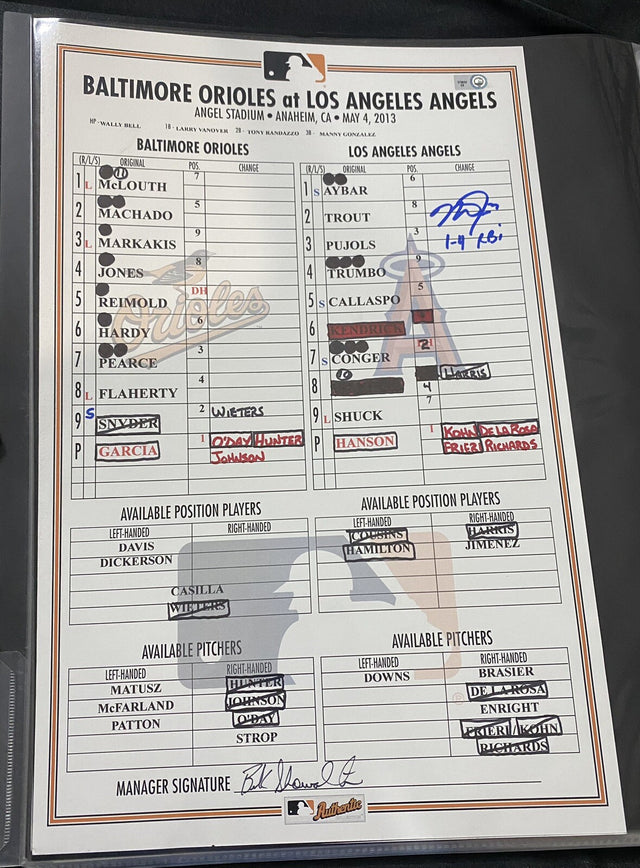 BALTIMORE ORIOLES at LOS ANGELES ANGELS
ANGEL STADIUM • ANAHEIM, CA • MAY 4, 2013
HP - WALLY BELL 1B - LARRY VANOVER 2B - TONY RANDAZZO 3B - MANNY GONZALEZ
BALTIMORE ORIOLES
(R/L/S) ORIGINAL POS. CHANGE
1 L McLOUTH 7
2 MACHADO 5
3 L MARKAKIS 9
4 JONES 8
5 REIMOLD DH
6 HARDY 6
7 PEARCE 3
8 L FLAHERTY 4
9 S SNYDER 2 WIETERS
P GARCIA 1 O'DAY HUNTER
JOHNSON
Orioles
LOS ANGELES ANGELS
(R/L/S) ORIGINAL POS. CHANGE
1 S AYBAR 6
2 TROUT 8
3 PUJOLS 3
1-4 RBI
4 TRUMBO 9
5 S CALLASPO 5
6 KENDRICK
7 S CONGER 2
8 HARRIS
4
9 L SHUCK 7
P HANSON 1 KOHN DE LA ROSA
FRIERI RICHARDS
AVAILABLE POSITION PLAYERS
LEFT-HANDED RIGHT-HANDED
DAVIS
DICKERSON
CASILLA
WIETERS
AVAILABLE POSITION PLAYERS
LEFT-HANDED RIGHT-HANDED
COUSINS HARRIS
HAMILTON JIMENEZ
AVAILABLE PITCHERS
LEFT-HANDED RIGHT-HANDED
MATUSZ HUNTER
McFARLAND JOHNSON
PATTON O'DAY
STROP
AVAILABLE PITCHERS
LEFT-HANDED RIGHT-HANDED
DOWNS BRASIER
DE LA ROSA
ENRIGHT
FRIERI / KOHN
RICHARDS
MANAGER SIGNATURE Buck Showalter
Authentic